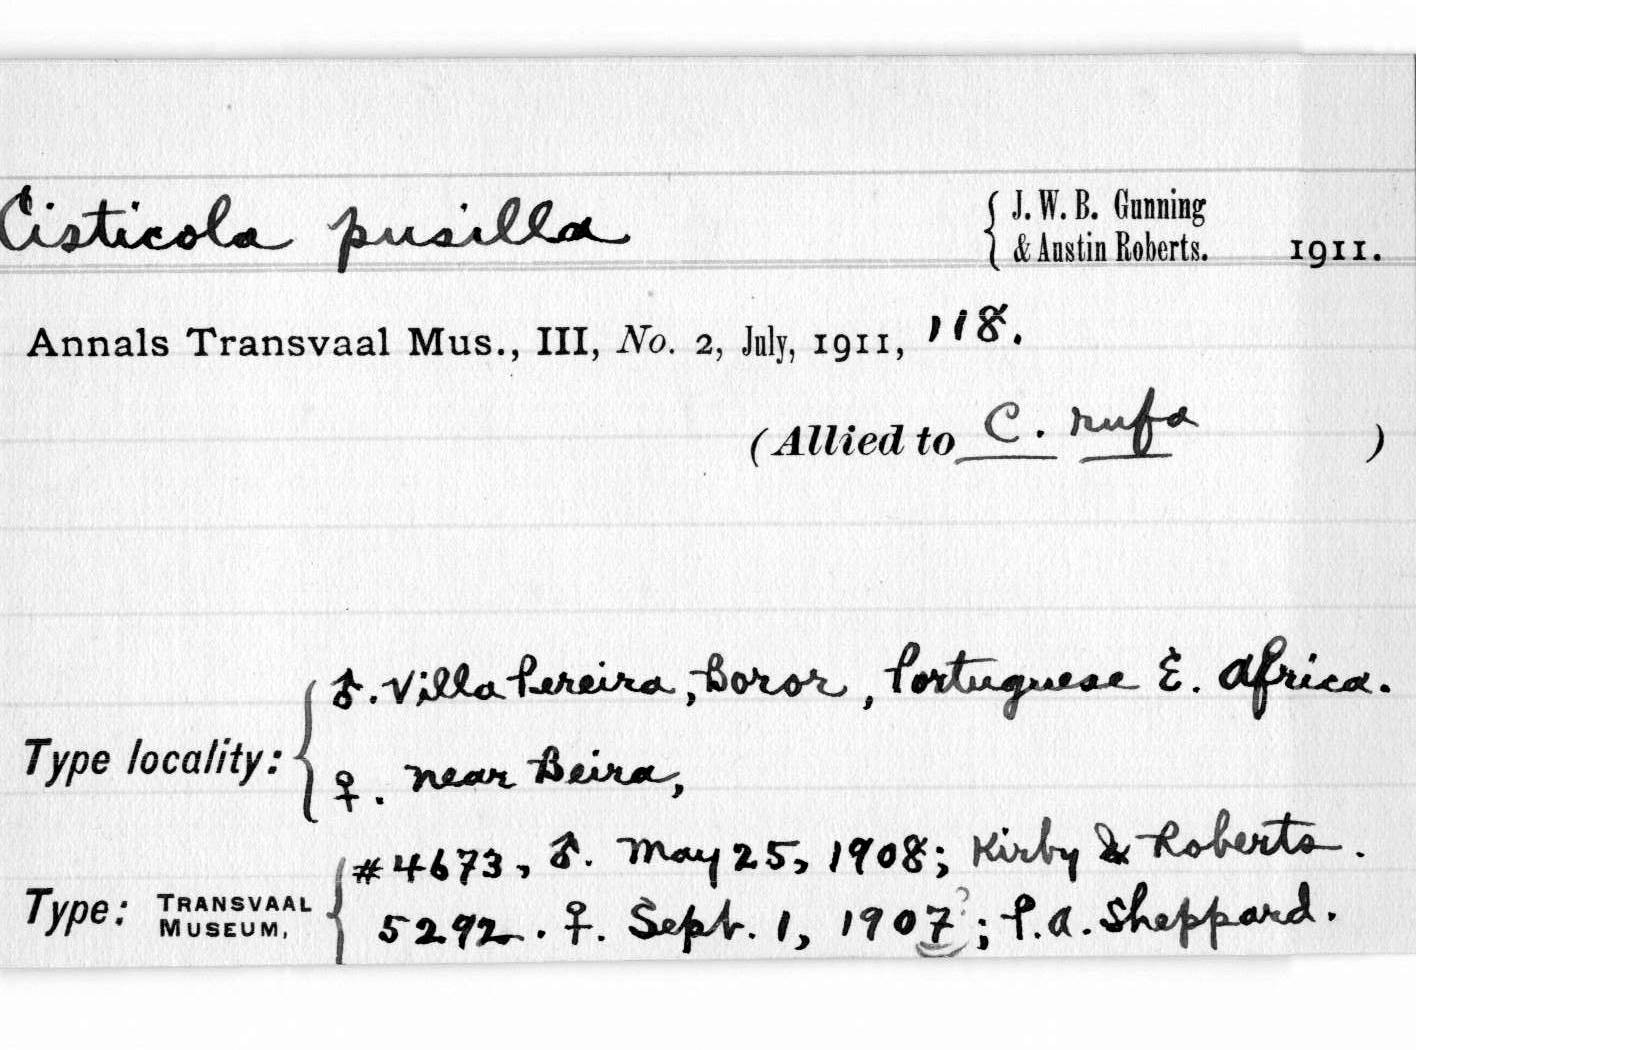 Cisticola pusilla { J. W. B. Gunning & Austin Roberts. 1911.
Annals Transvaal Mus., III, No. 2, July, 1911, 118.
(Allied to C. rufa )
Type locality: { ♂. Villa Pereira, Boror, Portuguese E. Africa.
♀. near Beira,
Type: TRANSVAAL MUSEUM, { #4673, ♂. May 25, 1908; Kirby & Roberts.
5292. ♀. Sept. 1, 1907?; P. A. Sheppard.